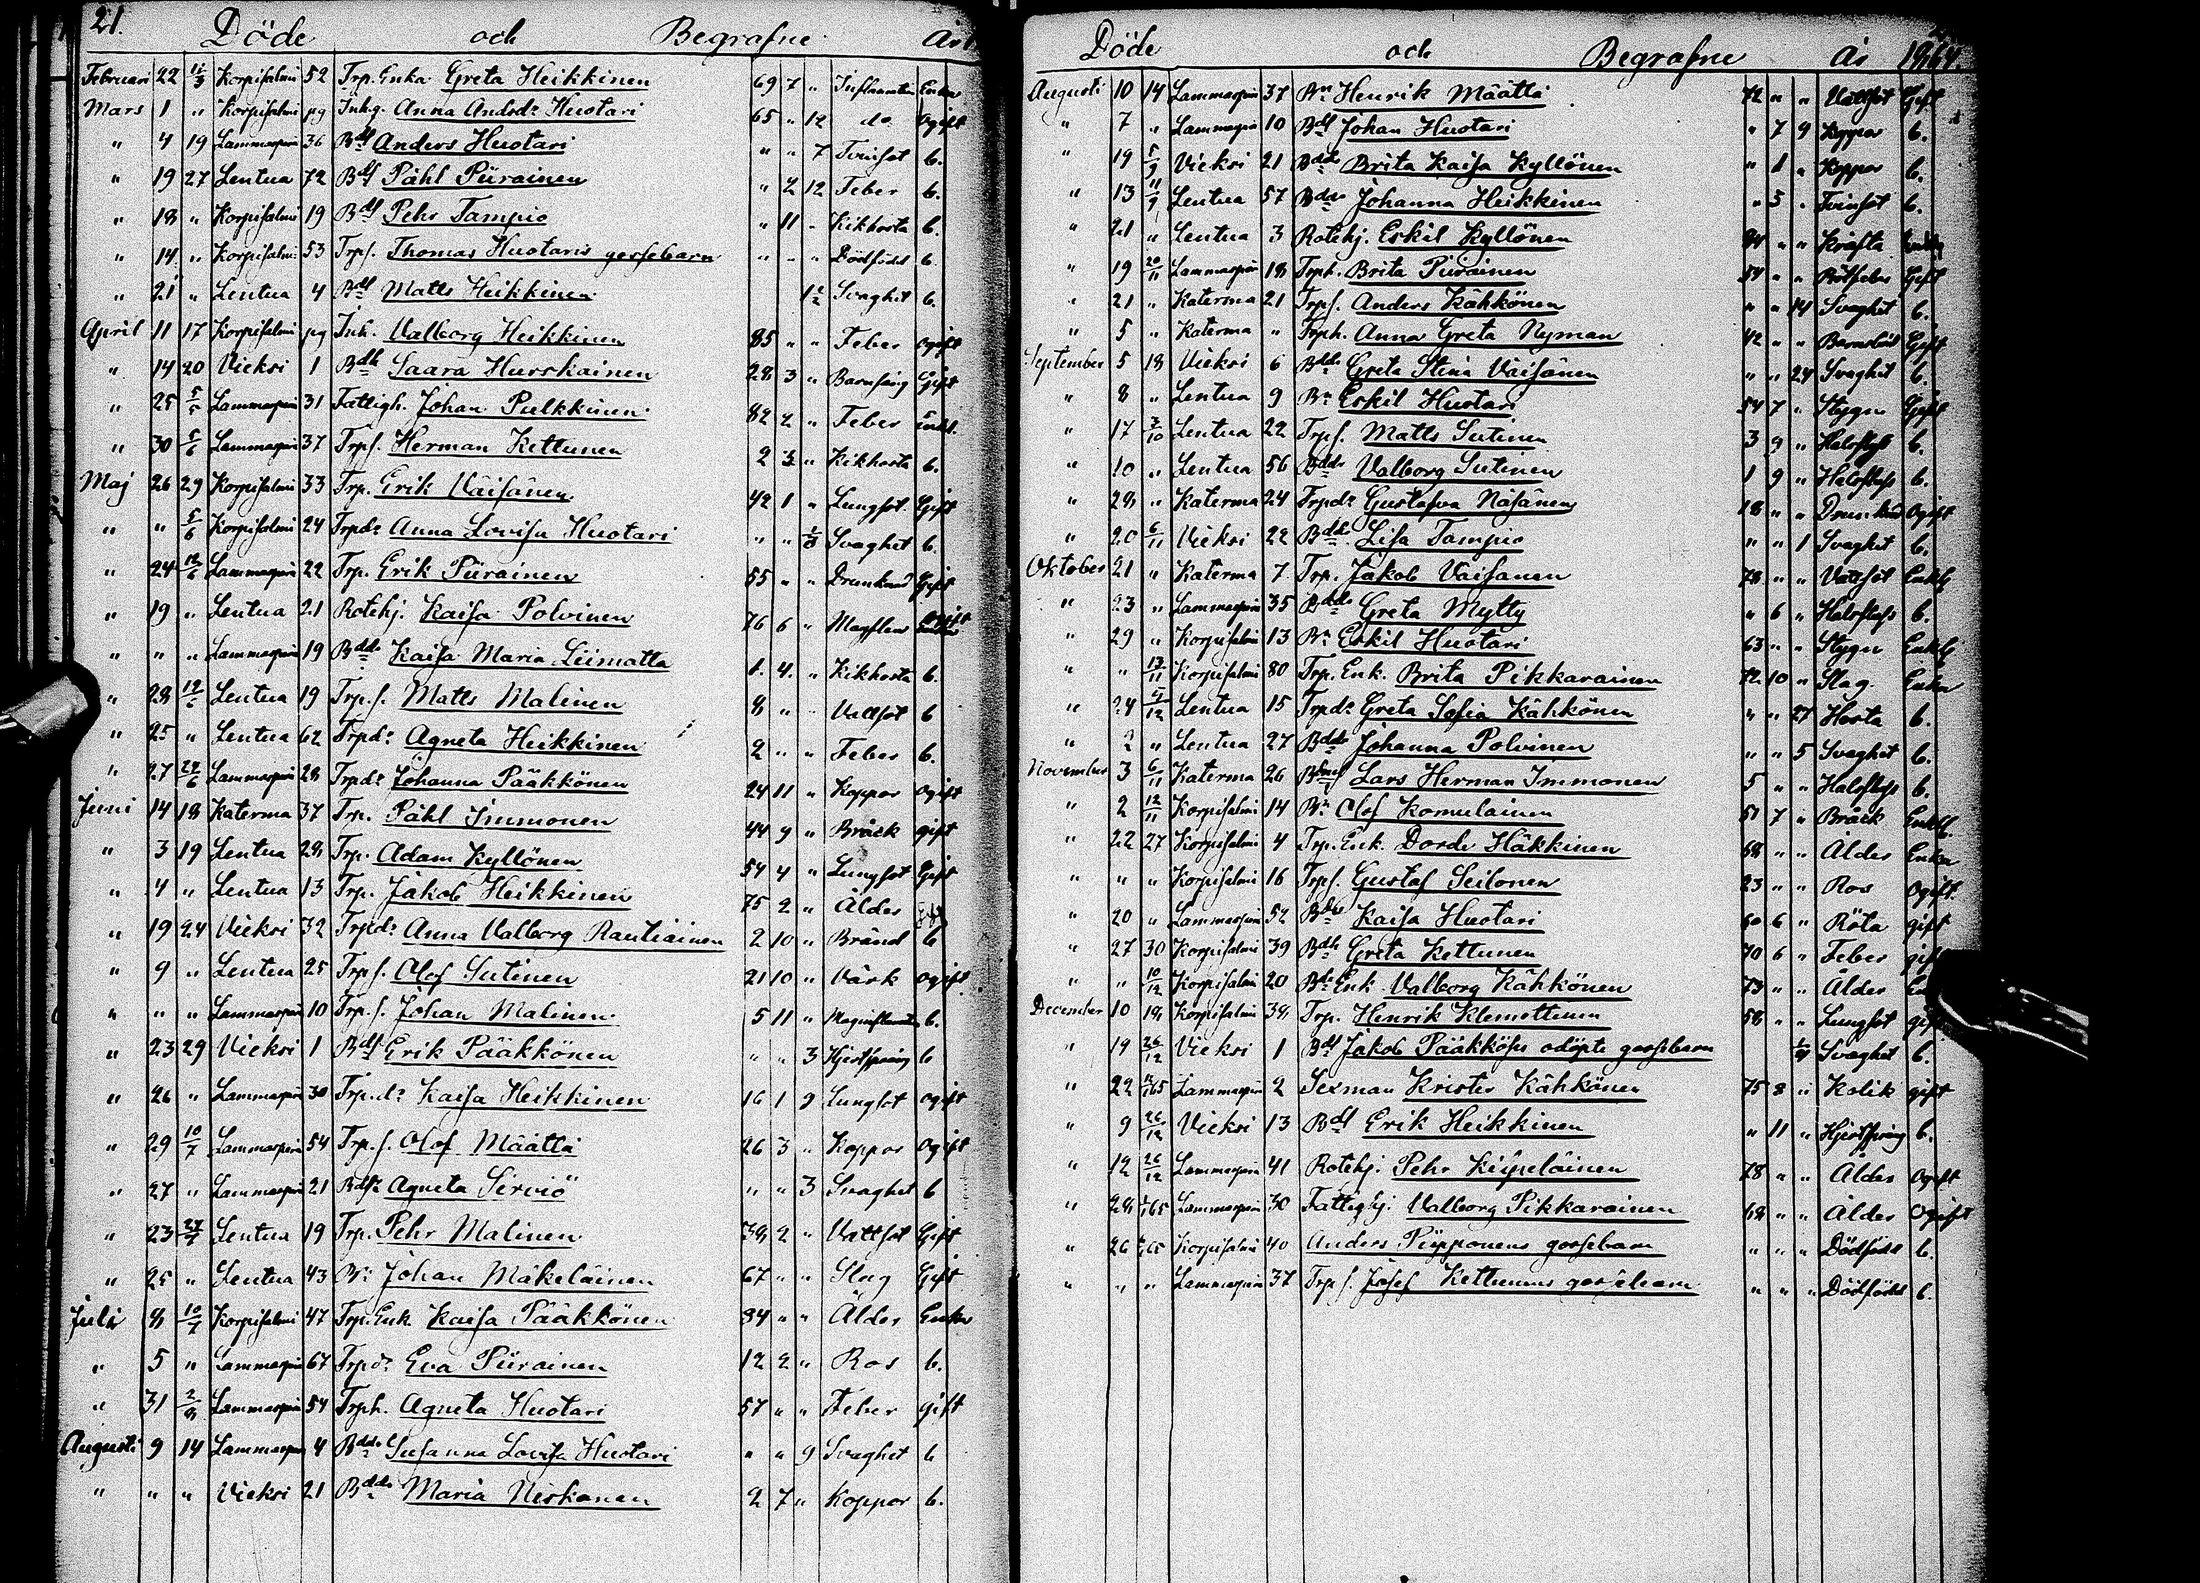 21.
Döde och Begrafne År
Februari 22 11/3 Korpisalmi 52 Trp. Enka Greta Heikkinen 69 7 " Inflamation Enka
Mars 1 " Korpisalmi pg Inhg. Anna Andsdr Huotari 65 " 12 do Ogift
" 4 19 Lammasperä 36 Bds Anders Huotari " " 7 Tvinsot b.
" 19 27 Lentua 72 Bds Påhl Piirainen " 2 12 Feber b.
" 18 " Korpisalmi 19 Bds Pehr Tampio " 11 " Kikhosta b.
" 14 " Korpisalmi 53 Trps. Thomas Huotaris gossebarn " " " Dödfödd b.
" 21 " Lentua 4 Bds Matts Heikkinen 1/2 Svaghet b.
April 11 17 Korpisalmi pg Inh. Valborg Heikkinen 85 " " Feber ogift
" 14 20 Vieksi 1 Bdh Saara Hurskainen 28 3 " Barnsäng Gift
" 25 5/5 Lammasperä 31 Fattigh. Johan Pulkkinen 82 2 " Feber Enkl.
" 30 5/6 Lammasperä 37 Trps. Herman Kettunen 2 3 " Kikhosta b.
Maj 26 29 Korpisalmi 33 Trp. Erik Väisänen 42 1 " Lungsot Gift
" " 5/6 Korpisalmi 24 Trpdr Anna Lovisa Huotari " " Svaghet b.
" 24 12/6 Lammasperä 22 Trp. Erik Piirainen 55 " " Drunknad Gift
" 19 " Lentua 21 Rotehj. Kaisa Polvinen 76 6 "
" " " Lammasperä 19 Bdds Kaisa Maria Leimatta 1. 4. " Kikhosta b.
" 28 12/6 Lentua 19 Trp.s. Matts Malinen 8 " " Vattsot b
" 25 " Lentua 62 Trpdr Agneta Heikkinen 2 " " Feber b.
" 27 24/6 Lammasperä 28 Trpdr Johanna Pääkkönen 24 11 " Koppor ogift
Juni 14 18 Katerma 37 Trp. Påhl Immonen 44 9 " Bråck gift
" 3 19 Lentua 28 Trp. Adam Kyllönen 54 4 " Lungsot Gift
" 4 " Lentua 13 Trp. Jakob Heikkinen 75 2 " Ålder
" 19 24 Vieksi 32 Trpdr Anna Valborg Rautiainen 2 10 " Bränd b
" 9 " Lentua 25 Trps. Olof Sutinen 21 10 " Värk ogift
" " " Lammasperä 10 Trp.s. Johan Malinen 5 11 " b.
" 23 29 Vieksi 1 Bds Erik Pääkkönen " " 3 Hjertsprång b
" 26 " Lammasperä 30 Trp.dr Kaisa Heikkinen 16 1 9 Lungsot ogift
" 29 10/7 Lammasperä 54 Trp.s. Olof Määttä 26 3 " Koppor Ogift
" 27 " Lammasperä 21 Bdsr Agneta Serviö " " 3 Svaghet b
" 23 27/7 Lentua 19 Trp. Pehr Malinen 38 2 " Vattsot Gift
" 25 " Lentua 43 Bn Johan Mäkeläinen 67 " " Slag Gift
Juli 8 10/7 Korpisalmi 47 Trp. Enk Kaisa Pääkkönen 84 " " Ålder Enka
" 5 " Lammasperä 67 Trpdr Eva Piirainen 12 2 " Ros b.
" 31 2/8 Lammasperä 54 Trph. Agneta Huotari 57 " " Feber gift
Augusti 9 14 Lammasperä 4 Bdds Susanna Lovisa Huotari " " 9 Svaghet b
" " " Vieksi 21 Bdds Maria Niskanen 2 7 " Koppor b.
Döde och Begrafne År 1864.
Augusti 10 14 Lammasperä 37 Bn Henrik Määttä 72 " " Vattsot Gift
" 7 " Lammasperä 10 Bds Johan Huotari " 7 9 Koppor b.
" 19 5/9 Vieksi 21 Bdds Brita Kaisa Kyllönen " 1 " Koppor b.
" 13 11/9 Lentua 57 Bdds Johanna Heikkinen " 5 " Tvinsot b.
" 21 " Lentua 3 Rotehj. Eskil Kyllönen 84 " " Kräfta
" 19 20/11 Lammasperä 18 Trph. Brita Piirainen 54 " " Rötfeber Gift
" 21 " Katerma 21 Trps. Anders Kähkönen " " 14 Svaghet b.
" 5 " Katerma " Trph. Anna Greta Nyman 42 " " Barnsbörd Gift
September 5 18 Vieksi 6 Bdds Greta Stina Väisänen " " 24 Svaghet b.
" 8 " Lentua 9 Bn Eskil Huotari 54 7 " Stygn Gift
" 17 2/10 Lentua 22 Trps. Matts Sutinen 3 9 " Halsfluss b.
" 10 " Lentua 56 Bdds Valborg Sutinen 1 9 " Halsfluss b.
" 28 " Katerma 24 Trpdr Gustafva Näsänen 18 " " Drunknad Ogift
" 20 6/11 Vieksi 22 Bdds Lisa Tampio " " 1 Svaghet b.
Oktober 21 " Katerma 7 Trp. Jakob Väisänen 78 " " Vattsot Enkl
" 23 " Lammasperä 35 Bdds Greta Mytty " 6 " Halsfluss b.
" 29 " Korpisalmi 13 Bn Eskil Huotari 63 " " Stygn Enkl
" " 13/11 Korpisalmi 80 Trp. Enk. Brita Pikkarainen 72 10 " Slag. Enka
" 24 4/12 Lentua 15 Trpdr Greta Sofia Kähkönen " " 27 Hosta b.
" 2 " Lentua 27 Bdds Johanna Polvinen " " 5 Svaghet b.
November 3 6/11 Katerma 26 Lars Herman Immonen 5 " " Halsfluss b.
" 2 12/11 Korpisalmi 14 Bn Olof Komulainen 51 7 " Bråck Enkl.
" 22 27 Korpisalmi 4 Trp. Enk. Dorde Häkkinen 68 " " Ålder Enka
" " " Korpisalmi 16 Trps. Gustaf Seilonen 23 " " Ros Ogift
" 20 " Lammasperä 52 Kaisa Huotari 60 6 " Röta gift
" 27 30 Korpisalmi 39 Bdh Greta Kettunen 70 6 " Feber gift
" " 10/12 Korpisalmi 20 Bn Enk Valborg Kähkönen 73 " " Ålder
December 10 18 Korpisalmi 38 Trp. Henrik Klemettinen 58 " " Lungsot
" 19 26/12 Vieksi 1 Bds Jakob Pääkkös odöpte gossebarn Svaghet b.
" 22 Lammasperä 2 Sexman Krister Kähkönen 75 8 " Kolik gift
" 9 26/12 Vieksi 13 Bds Erik Heikkinen " 11 " Hjertsprång b.
" 12 26/12 Lammasperä 41 Rotehj. Pehr Kinpeläinen 78 " " Ålder Ogift
" 28 Lammasperä 30 Fattighj. Valborg Pikkarainen 68 " " Ålder Ogift
" 26 Korpisalmi 40 Anders Piipponens gossebarn " " " Dödfödd b.
" " " Lammasperä 37 Trp s. Josef Kettunens gossebarn " " " Dödfödd b.